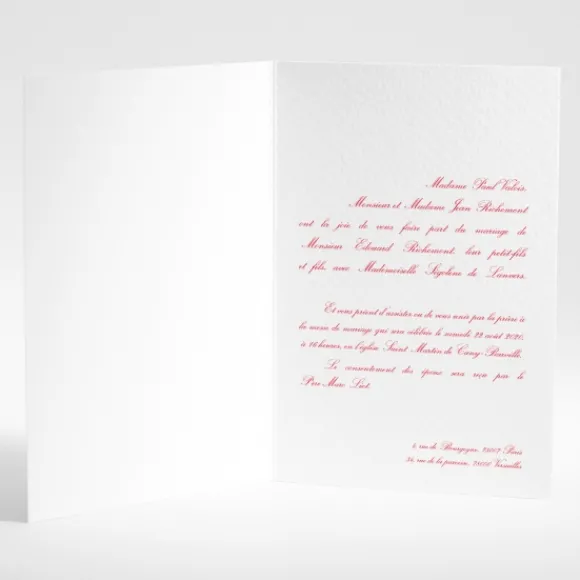 Madame Paul Valois,
Monsieur et Madame Jean Richemont
ont la joie de vous faire part du mariage de
Monsieur Edouard Richemont, leur petit-fils
et fils, avec Mademoiselle Ségolène de
Et vous prient d'assister ou de vous unir par la prière à
la messe de mariage qui sera célébrée le samedi 22 août 2020,
à 16 heures, en l'église Saint Martin de
Le consentement des époux sera reçu par le
Père Marc
rue de Bourgogne, Paris
rue de la Versailles